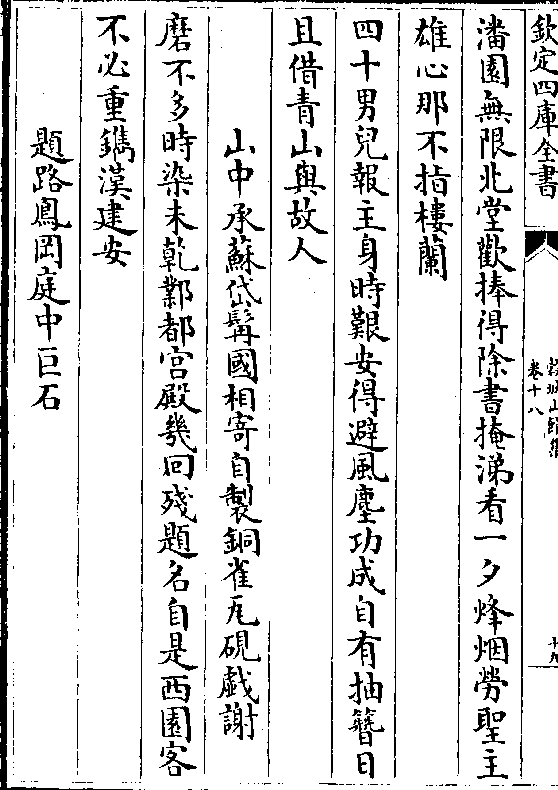 欽定四庫全書
穀城山館集
卷十八
十九
潘園無限北堂歡捧得除書掩涕看一夕烽烟勞聖主
雄心那不指樓蘭
四十男兒報主身時艱安得避風塵功成自有抽簪日
且借青山與故人
山中承蘇岱髯國相寄自製銅雀瓦硯戯謝
磨不多時染未乾鄴都宫殿幾回殘題名自是西園客
不必重鐫漢建安
題路鳳岡庭中巨石